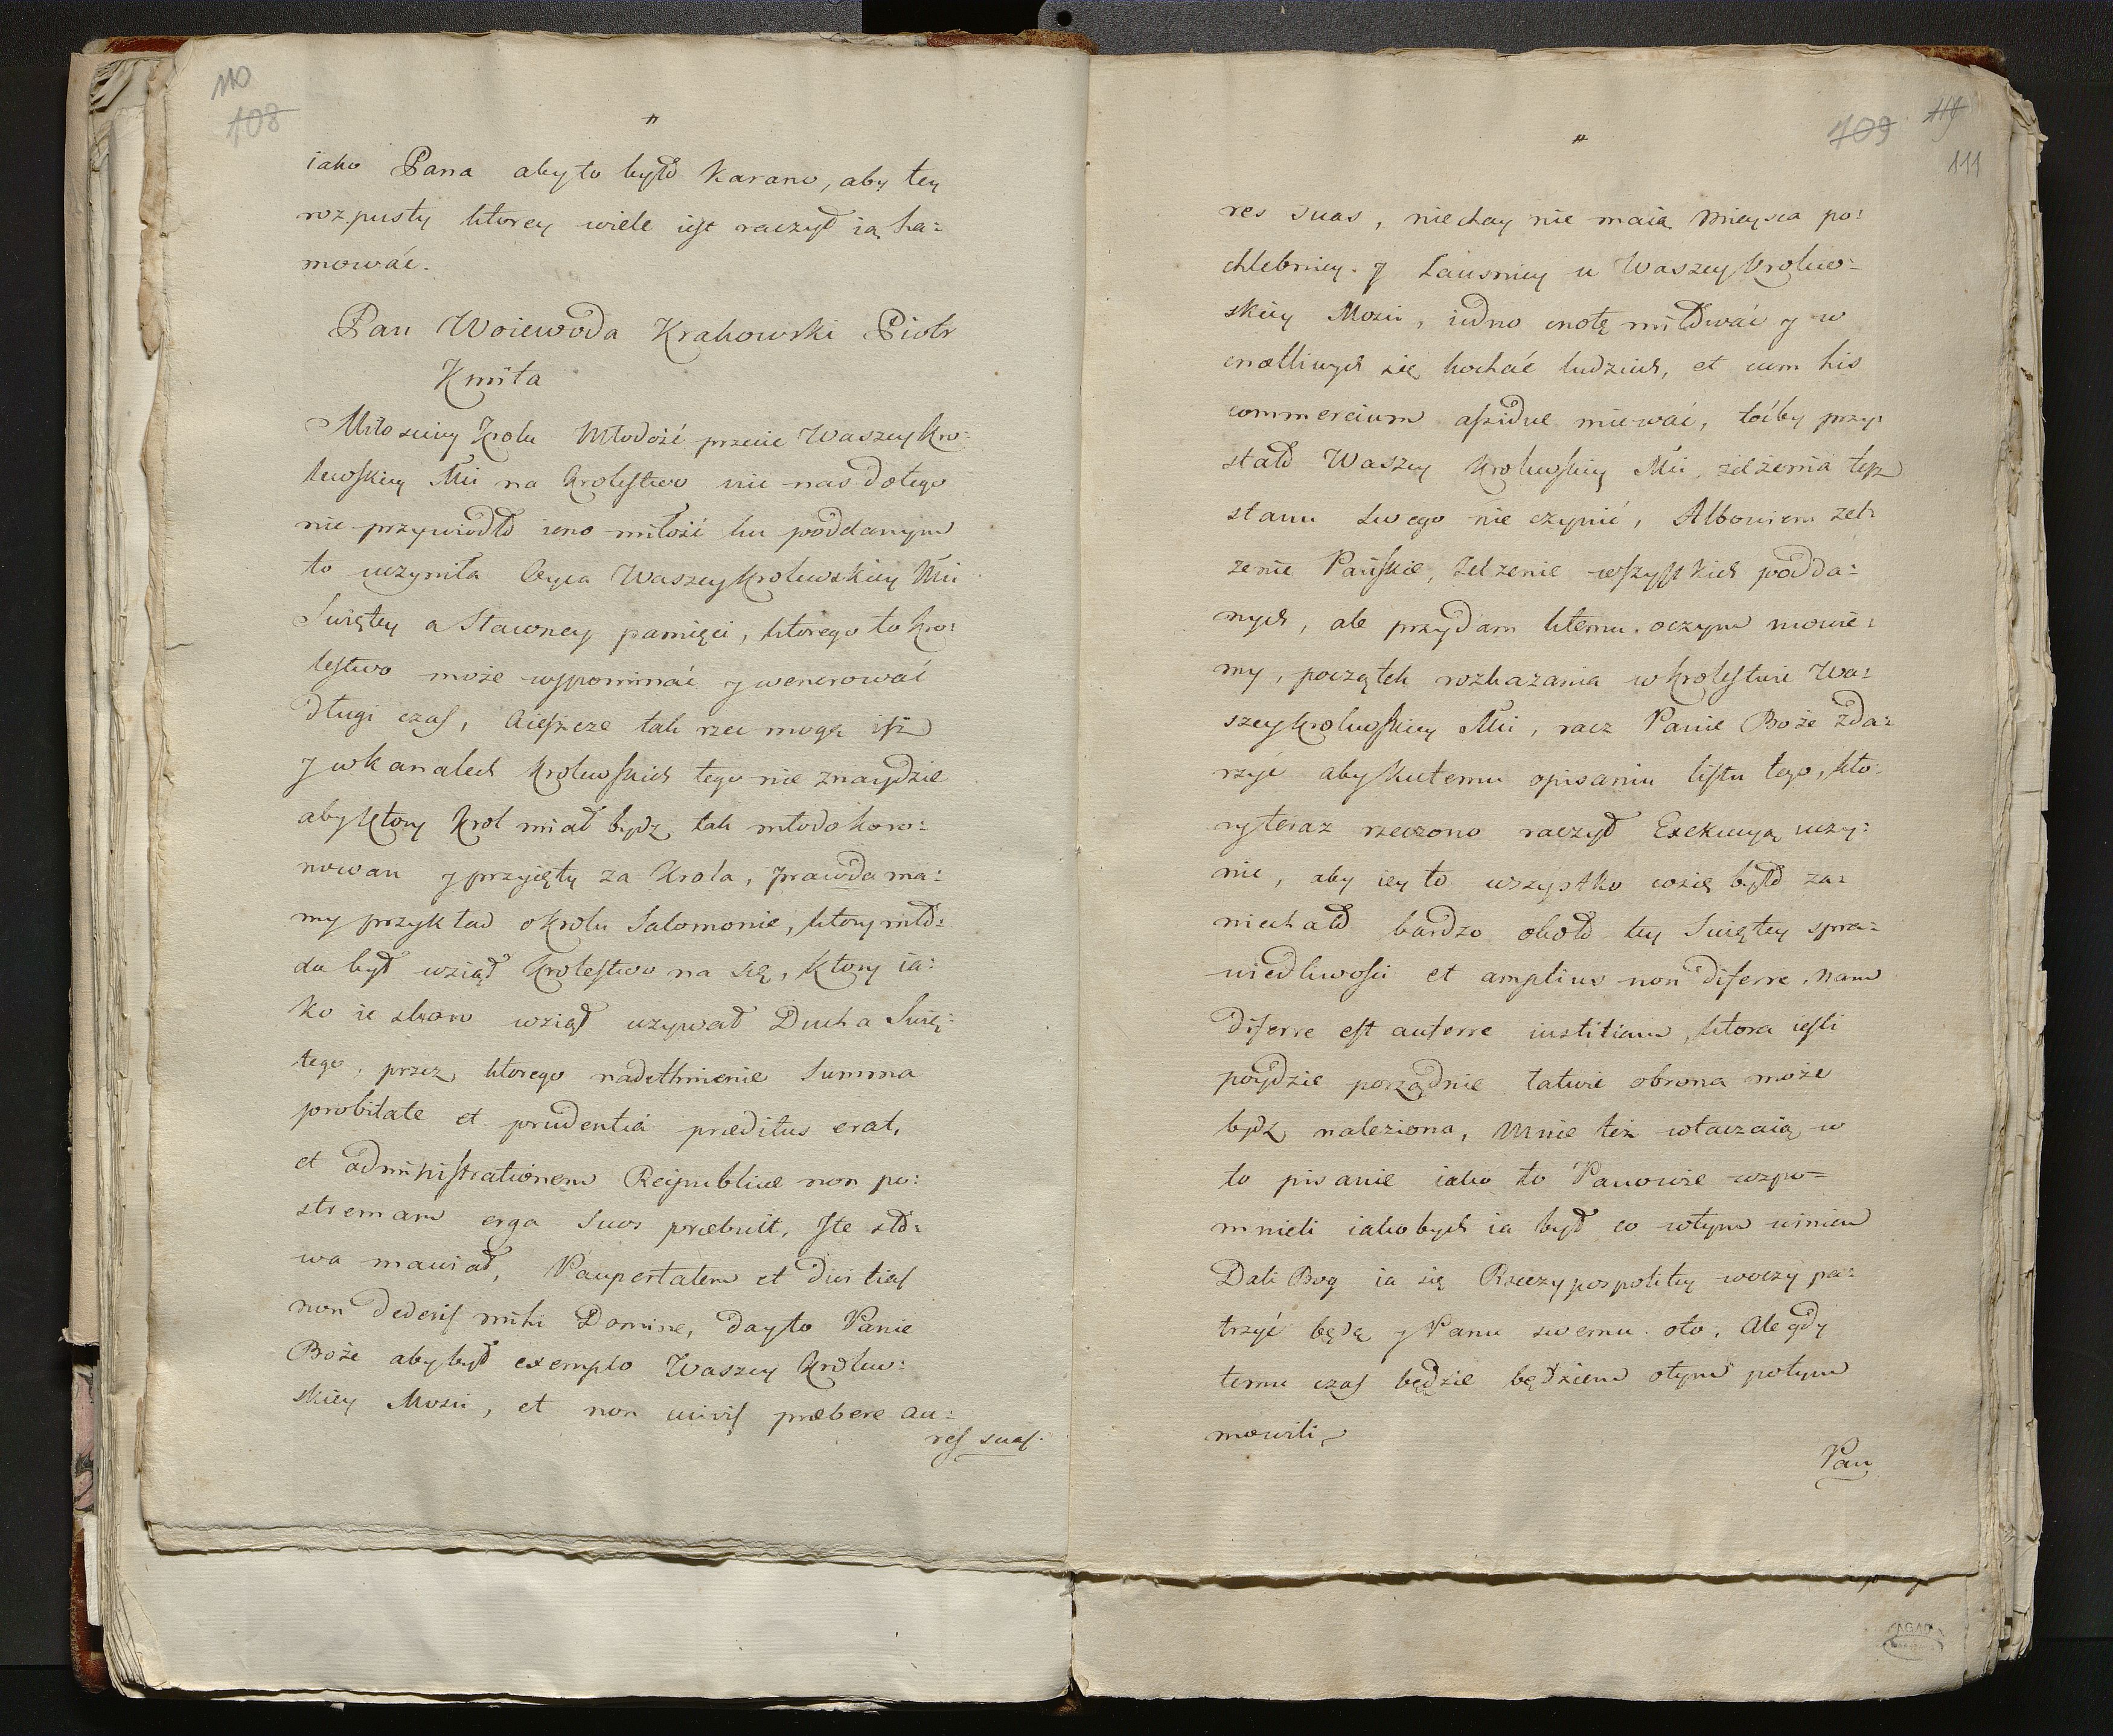 110
108
"
iako Pana aby to było karano, aby tey
rozpusty ktorey wiele iest raczył ią ha:
mować.
Pan Woiewoda Krakowski Piotr
Kmita
Miłosciwy Krolu Młodość przecie Waszey Kro:
lewskiey Mci na krolestwo nic nas do tego
nie przywiodło ieno miłość ku poddanym
to uczyniła Oyca Waszey Krolewskiey Mci
Swiętey a Sławney pamięci, ktorego to kro:
lestwo może wspominać y wenerować
długi czas, a ieszcze tak rzec mogę isz
y w kanalech krolewskich tego nie znaydzie
aby ktory krol miał bydz tak młodo koro:
nowan y przyięty za krola, prawda ma:
my przykład o krolu Salomonie, ktory mło:
do był wziął krolestwo na się, ktory ia:
ko ie skoro wziął uzywał Ducha Swię:
tego, przez ktorego nadethnienie Summa
probitate et prudentiá præditus erat,
et administrationem Reipublicæ non po:
stremam erga Suos præbuit, Ste sło:
wa mawiał, Paupertatem et divitias
non dederis mihi Domine, day to Panie
Boże aby był exemplo Waszey Krolew:
skiey Mosci, et non cuivis præbere au:
res suas.
409 119
111
"
res suas, niechay nie maią Mieysca po:
chlebnicy. y Łausnicy u Waszey Krolew:
skiey Mosci, iedno cnotę miłować y w
cnotliwych się kochać ludziech, et cum his
commercium assidue miewać, toćby przy:
stało Waszey Krolewskiey Mci, zelżenia tesz
stanu swego nie czynić, Albowiem zel:
żenie Pańskie, zelzenie wszystkich podda:
nych, ale przydam k temu. o czym mowie:
my, początek rozkazania w krolestwie Wa:
szey Krolewskiey Mci, racz Panie Boże zda:
rzyć aby ku temu opisaniu listu tego, kto:
ry teraz rzeczono raczył Exekucyą uczy:
nic, aby iey to wszystko coś się było za:
niechało bardzo około tey Swiętey spra:
wiedliwości et amplius non diferre, nam
diferre est auferre iustitiam, ktora iesli
poydzie porządnie łatwie obrona może
bydz naleziona, Mnie też wtaczaią w
to pisanie iako to Panowie wspo:
mnieli iakobych ia był co w tym winien
Dali Bog ia się Rzeczypospolitey w oczy pa:
trzyć będę y Panu swemu. oto, Ale gdy
temu czas będzie będziem o tym potym
mowili
Pan
AGAD